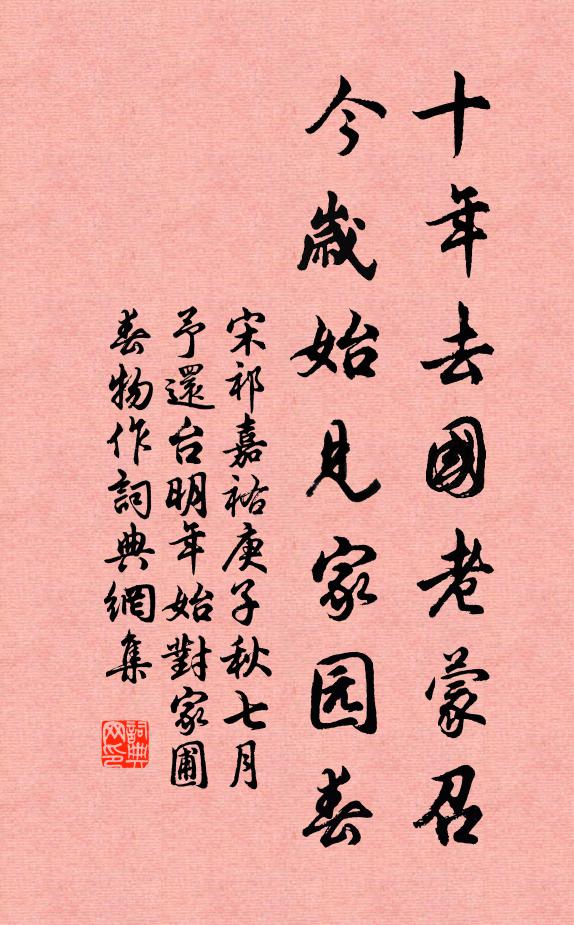 十年去國老蒙召
今歲始見家园春
宋祁嘉祐庚子秋七月
予還台明年始對家圃
春物作詞典網集
詞典网印